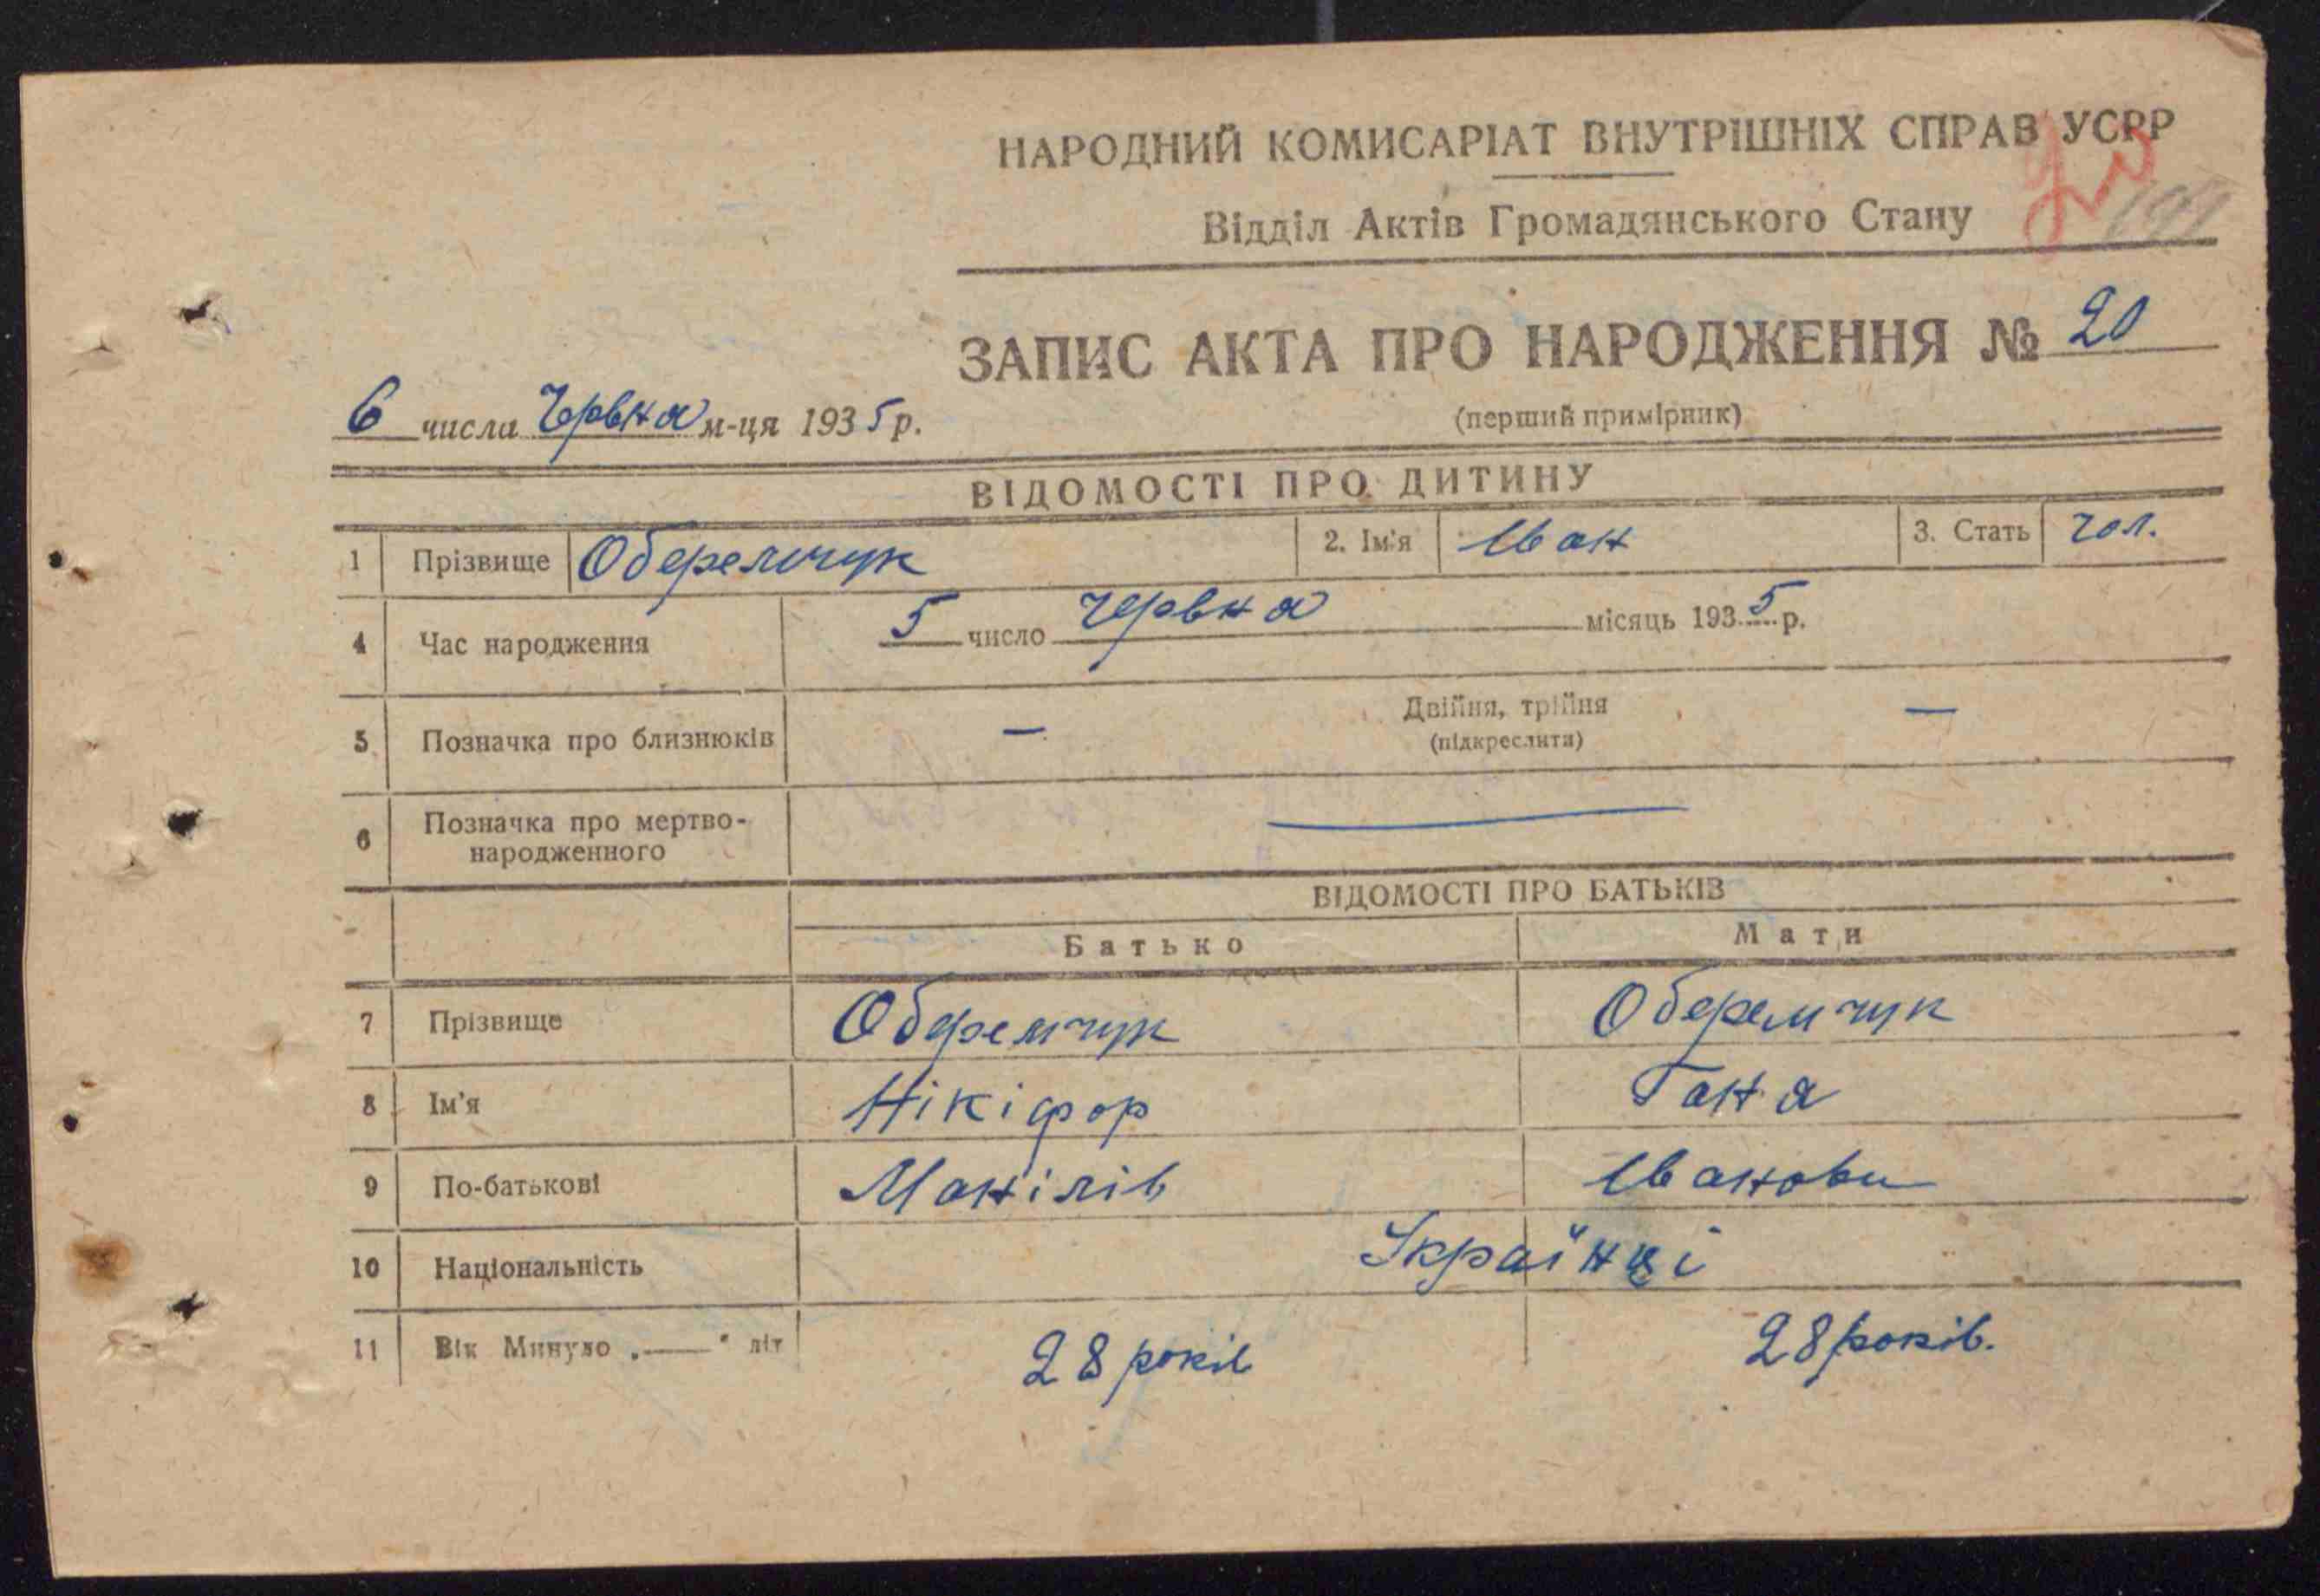 НАРОДНИЙ КОМИСАРІАТ ВНУТРІШНІХ СПРАВ УСРР
Відділ Актів Громадянського Стану
ЗАПИС АКТА ПРО НАРОДЖЕННЯ № 20
6 числа Червня м-ця 1935 р.
(перший примірник)
ВІДОМОСТІ ПРО ДИТИНУ
1 Прізвище Оберемчук 2. Ім'я Іван 3. Стать чол.
4 Час народження 5 число червня місяць 1935 р.
5 Позначка про близнюків — Двійня, трійня —
(підкреслити)
6 Позначка про мертво-
народженного —
ВІДОМОСТІ ПРО БАТЬКІВ
Батько Мати
7 Прізвище Оберемчук Оберемчук
8 Ім'я Нікіфор Ганя
9 По-батькові Манілів Іванови
10 Національність Українці
11 Вік Минуло „—" літ 28 років 28 років.